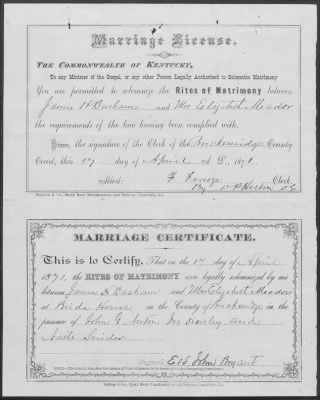 Marriage License.
THE COMMONWEALTH OF KENTUCKY,
To any Minister of the Gospel, or any other Person Legally Authorized to Solemnize Matrimony
You are permitted to solemnize the Rites of Matrimony between
James H Basham and Mrs Elizabeth Meador
the requirements of the law having been complied with.
Given, the signature of the Clerk of the Breckenridge County
Court, this 17 day of April A. D., 1871.
Attest: Clerk.
By D.C
MARRIAGE CERTIFICATE.
This is to Certify, That on the 17 day of April
1871, the RITES OF MATRIMONY were legally solemnized by me
between James H Basham and Mrs Elizabeth Meador
at Brides House in the County of Breckenridge in the
presence of John G Jno and
Eld John Bryant